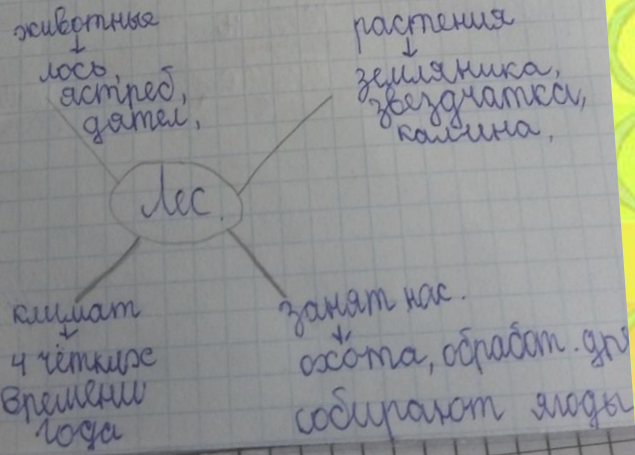 животные
лось,
ястреб,
дятел,
растения
земляника,
звездчатка,
калина,
Лес.
климат
4 чётких
времени
года
занят нас.
охота, обработ. др
собирают ягоды